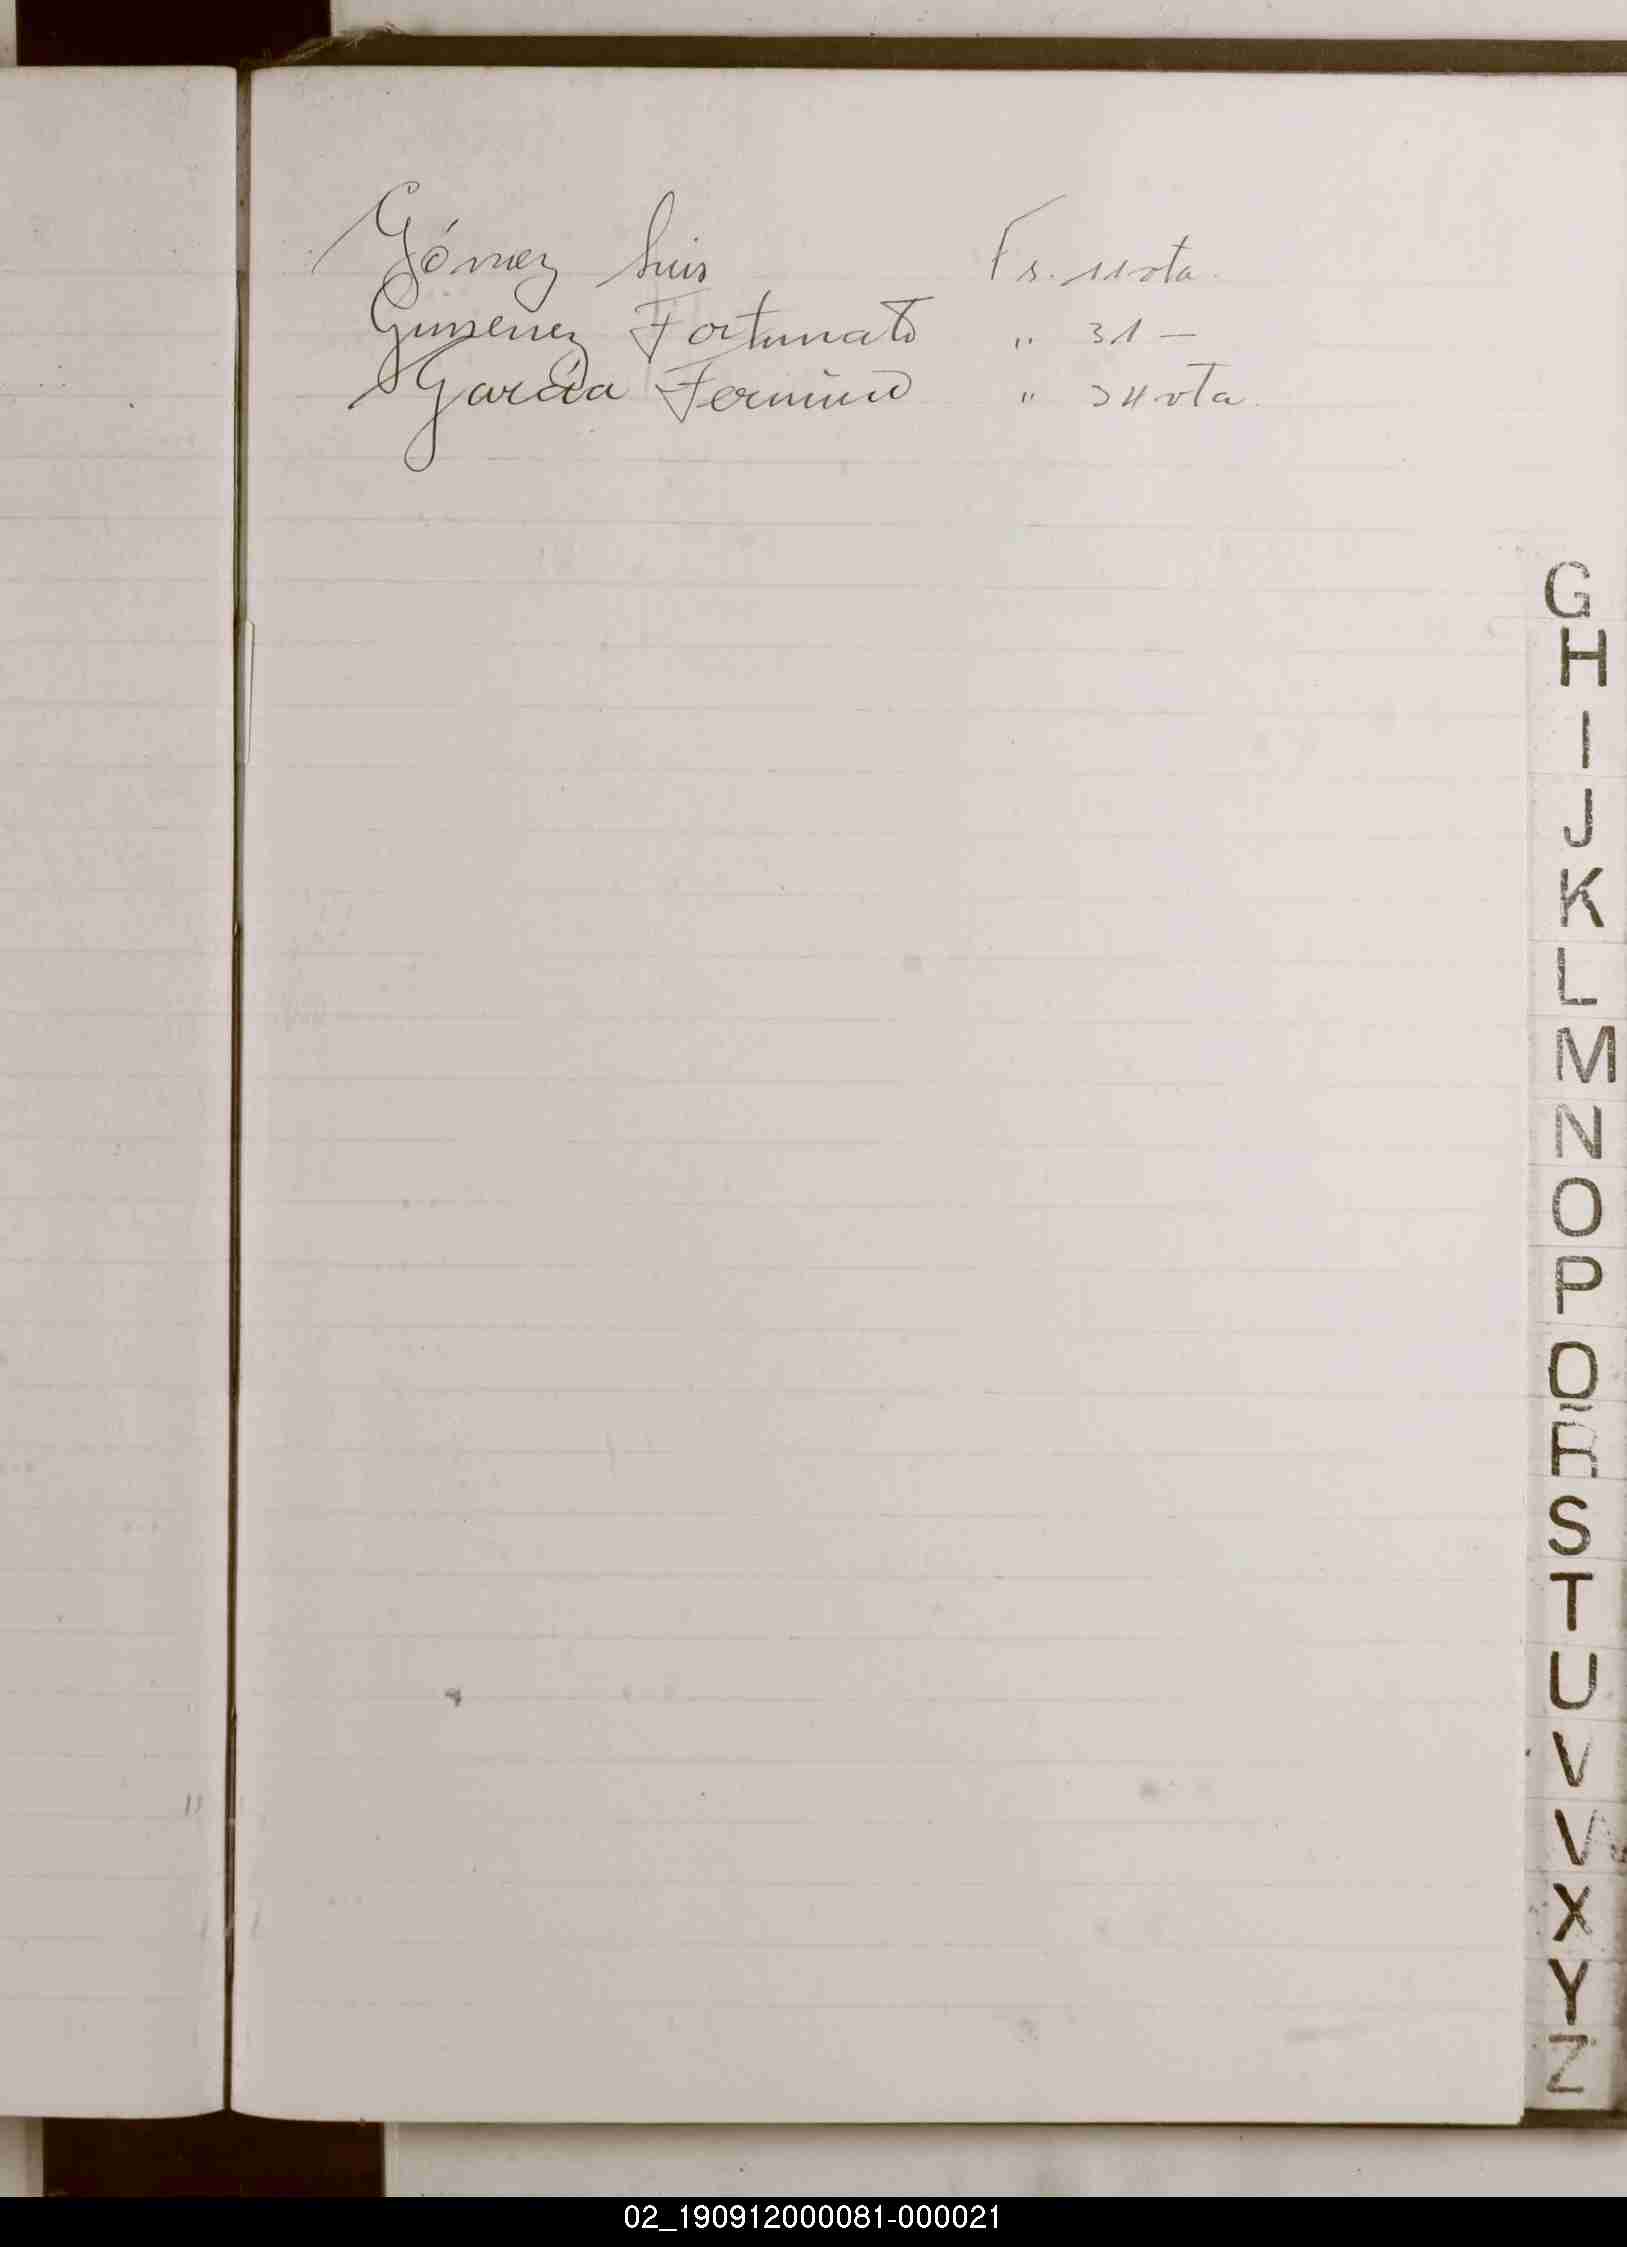 Gómez Luis Fs. 11 vta.
Gimenez Fortunato " 31 —
García Fermino " 34 vta.
G
H
I
J
K
L
M
N
O
P
Q
R
S
T
U
V
W
X
Y
Z
02_190912000081-000021